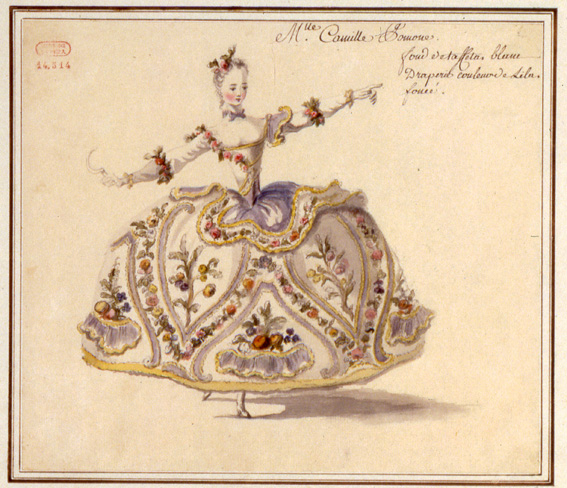 M.lle Camille Pomone.
fond de taffetas blanc
Draperie couleur de Lila
foncé.
14.514